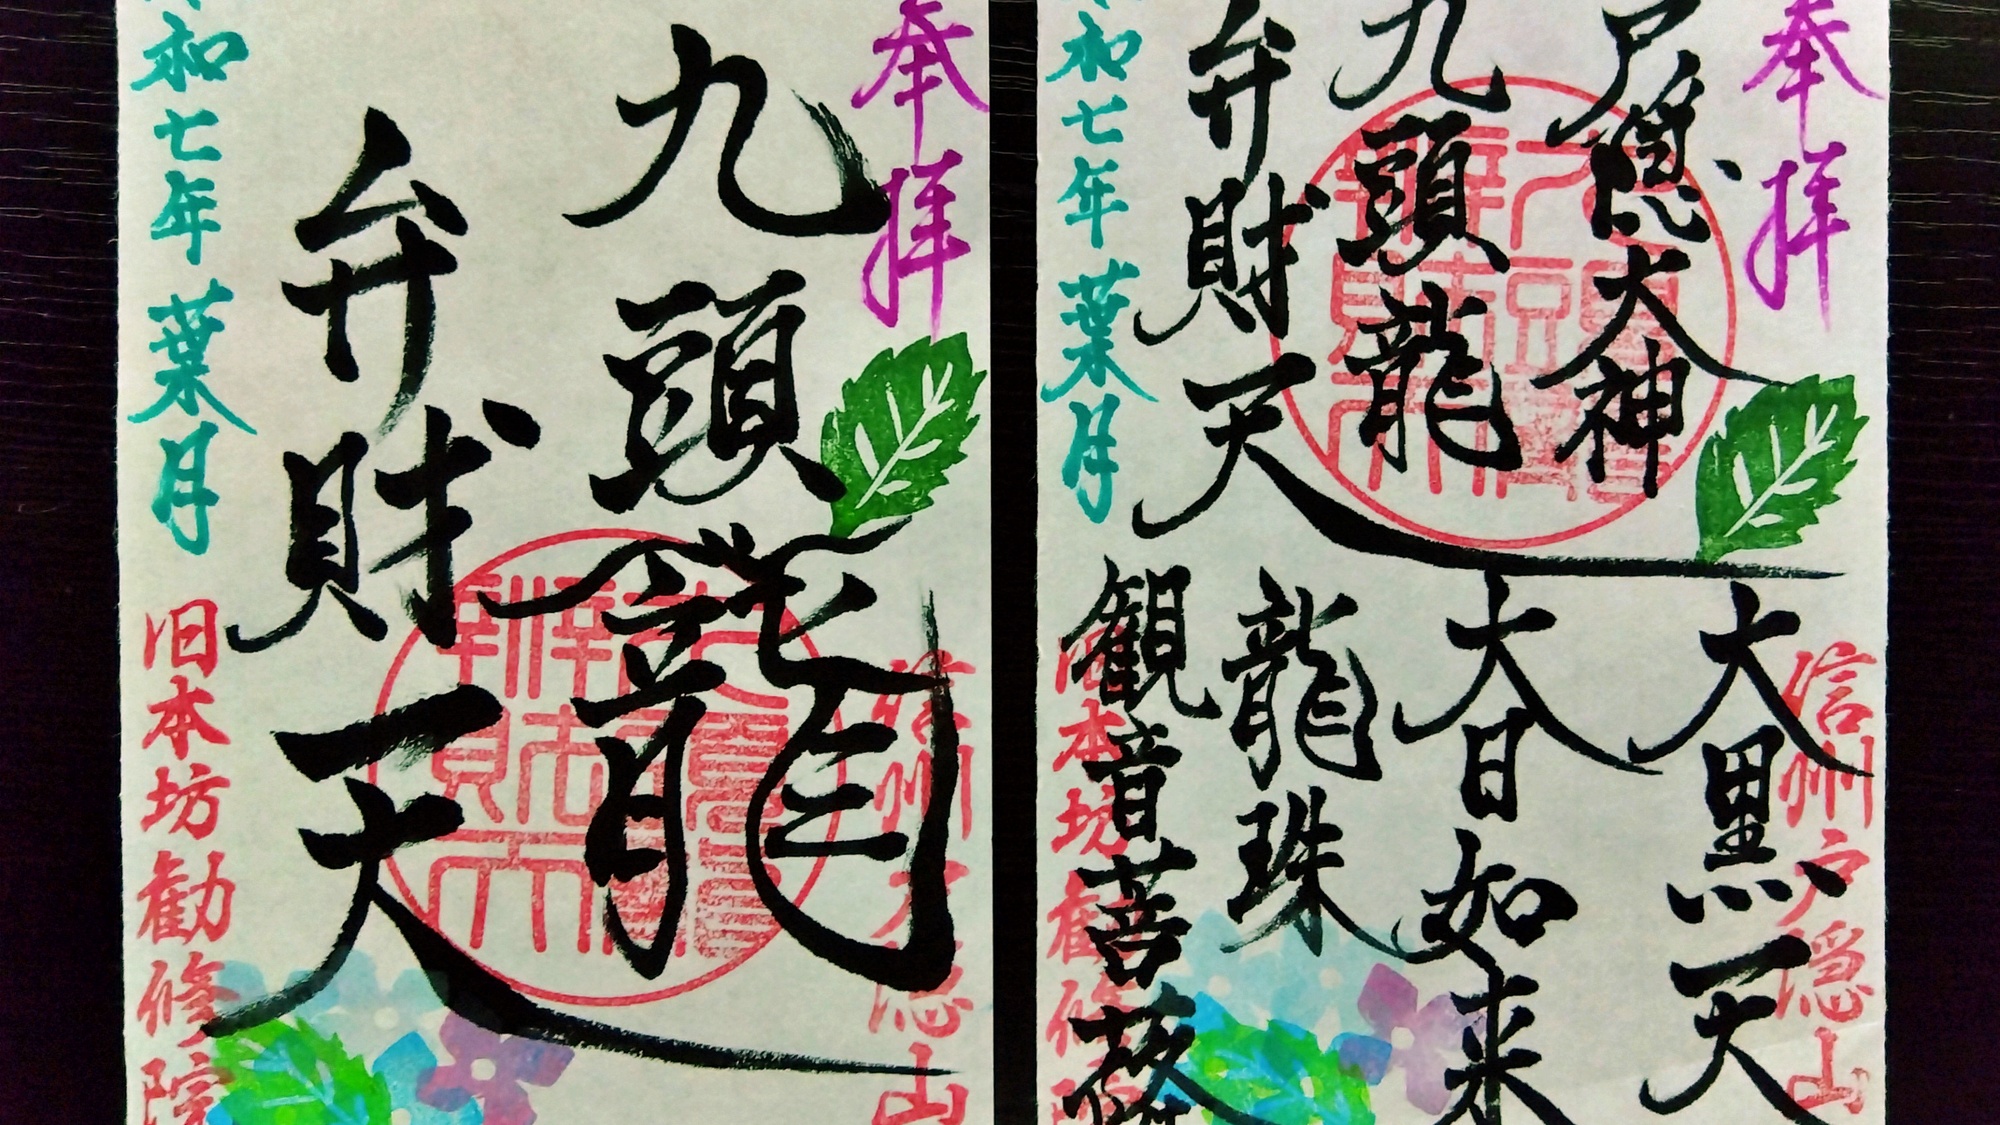 奉拝
九頭龍
弁財天
和七年葉月
信州戸隠山
旧本坊勧修院
奉拝
戸隠大神
九頭龍
弁財天
和七年葉月
大黒天
大日如来
龍珠
観音菩薩
信州戸隠山
旧本坊勧修院